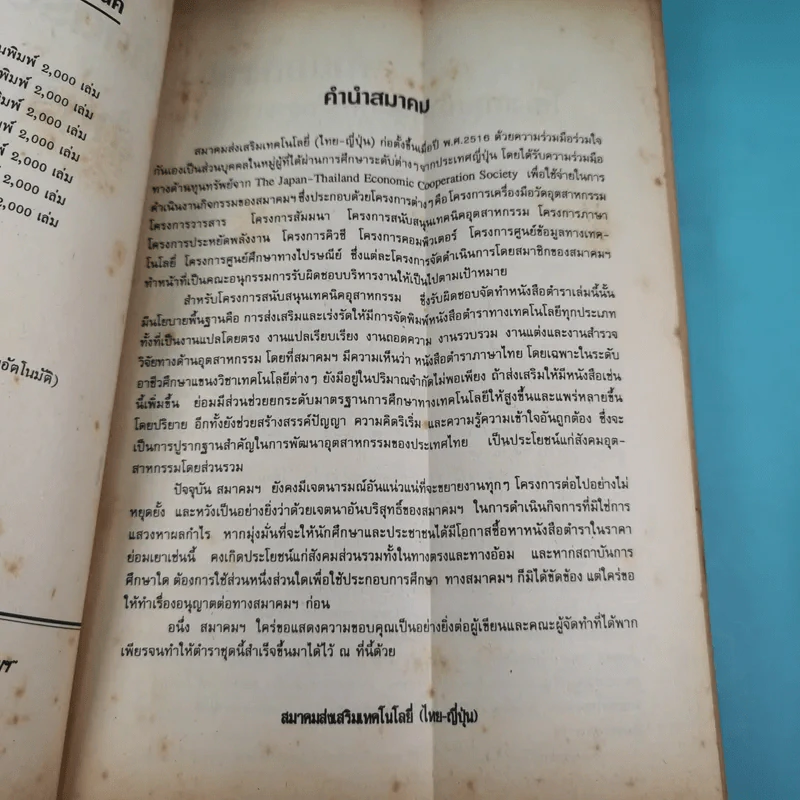 นค
นพิมพ์ 2,000 เล่ม
มพิมพ์ 2,000 เล่ม
มพ์ 2,000 เล่ม
พ์ 2,000 เล่ม
2,000 เล่ม
2,000 เล่ม
อัตโนมัติ)
ฯ
คำนำสมาคม
สมาคมส่งเสริมเทคโนโลยี่ (ไทย-ญี่ปุ่น) ก่อตั้งขึ้นเมื่อปี พ.ศ.2516 ด้วยความร่วมมือร่วมใจ
กันเองเป็นส่วนบุคคลในหมู่ผู้ที่ได้ผ่านการศึกษาระดับต่างๆ จากประเทศญี่ปุ่น โดยได้รับความร่วมมือ
ทางด้านทุนทรัพย์จาก The Japan-Thailand Economic Cooperation Society เพื่อใช้จ่ายในการ
ดำเนินงานกิจกรรมของสมาคมฯ ซึ่งประกอบด้วยโครงการต่างๆ คือ โครงการเครื่องมือวัดอุตสาหกรรม
โครงการวารสาร โครงการสัมมนา โครงการสนับสนุนเทคนิคอุตสาหกรรม โครงการภาษา
โครงการประหยัดพลังงาน โครงการคิวซี โครงการคอมพิวเตอร์ โครงการศูนย์ข้อมูลทางเทค-
โนโลยี่ โครงการศูนย์ศึกษาทางไปรษณีย์ ซึ่งแต่ละโครงการจัดดำเนินการโดยสมาชิกของสมาคมฯ
ทำหน้าที่เป็นคณะอนุกรรมการรับผิดชอบบริหารงานให้เป็นไปตามเป้าหมาย
สำหรับโครงการสนับสนุนเทคนิคอุสาหกรรม ซึ่งรับผิดชอบจัดทำหนังสือตำราเล่มนี้นั้น
มีนโยบายพื้นฐานคือ การส่งเสริมและเร่งรัดให้มีการจัดพิมพ์หนังสือตำราทางเทคโนโลยีทุกประเภท
ทั้งที่เป็นงานแปลโดยตรง งานแปลเรียบเรียง งานถอดความ งานรวบรวม งานแต่งและงานสำรวจ
วิจัยทางด้านอุตสาหกรรม โดยที่สมาคมฯ มีความเห็นว่า หนังสือตำราภาษาไทย โดยเฉพาะในระดับ
อาชีวศึกษาแขนงวิชาเทคโนโลยีต่างๆ ยังมีอยู่ในปริมาณจำกัดไม่พอเพียง ถ้าส่งเสริมให้มีหนังสือเช่น
นี้เพิ่มขึ้น ย่อมมีส่วนช่วยยกระดับมาตรฐานการศึกษาทางเทคโนโลยีให้สูงขึ้นและแพร่หลายขึ้น
โดยปริยาย อีกทั้งยังช่วยสร้างสรรค์ปัญญา ความคิดริเริ่ม และความรู้ความเข้าใจอันถูกต้อง ซึ่งจะ
เป็นการปูรากฐานสำคัญในการพัฒนาอุตสาหกรรมของประเทศไทย เป็นประโยชน์แก่สังคมอุต-
สาหกรรมโดยส่วนรวม
ปัจจุบัน สมาคมฯ ยังคงมีเจตนารมณ์อันแน่วแน่ที่จะขยายงานทุกๆ โครงการต่อไปอย่างไม่
หยุดยั้ง และหวังเป็นอย่างยิ่งว่าด้วยเจตนาอันบริสุทธิ์ของสมาคมฯ ในการดำเนินกิจการที่มิใช่การ
แสวงหาผลกำไร หากมุ่งมั่นที่จะให้นักศึกษาและประชาชนได้มีโอกาสซื้อหาหนังสือตำราในราคา
ย่อมเยาเช่นนี้ คงเกิดประโยชน์แก่สังคมส่วนรวมทั้งในทางตรงและทางอ้อม และหากสถาบันการ
ศึกษาใด ต้องการใช้ส่วนหนึ่งส่วนใดเพื่อใช้ประกอบการศึกษา ทางสมาคมฯ ก็มิได้ขัดข้อง แต่ใคร่ขอ
ให้ทำเรื่องอนุญาตต่อทางสมาคมฯ ก่อน
อนึ่ง สมาคมฯ ใคร่ขอแสดงความขอบคุณเป็นอย่างยิ่งต่อผู้เขียนและคณะผู้จัดทำที่ได้พาก
เพียรจนทำให้ตำราชุดนี้สำเร็จขึ้นมาได้ไว้ ณ ที่นี้ด้วย
สมาคมส่งเสริมเทคโนโลยี่ (ไทย-ญี่ปุ่น)